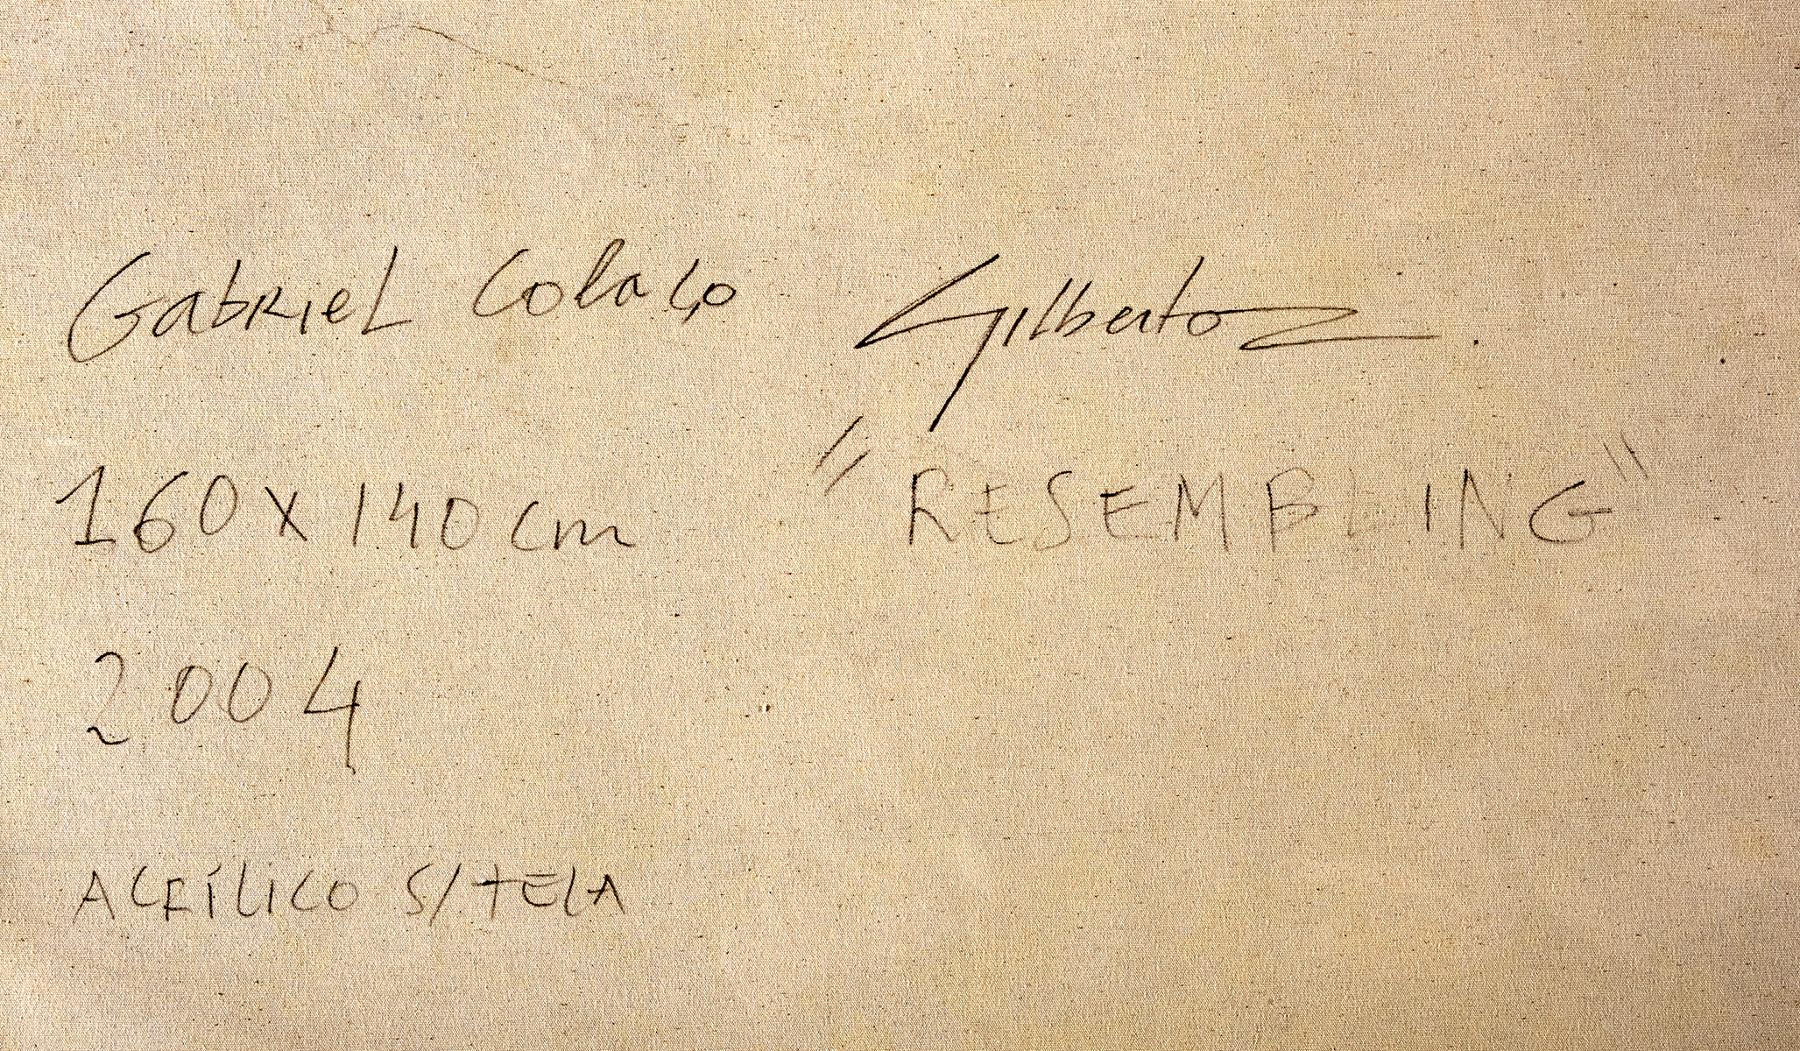 Gabriel Colaço Gilberto
160 x 140 cm "RESEMBLING"
2004
ACRÍLICO S/TELA